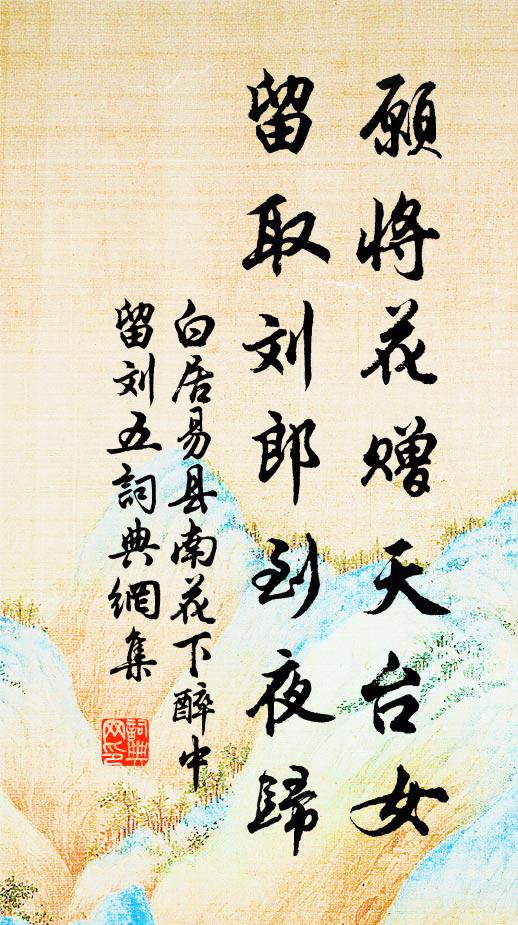 願将花赠天台女
留取刘郎到夜歸
白居易县南花下醉中
留刘五詞典網集